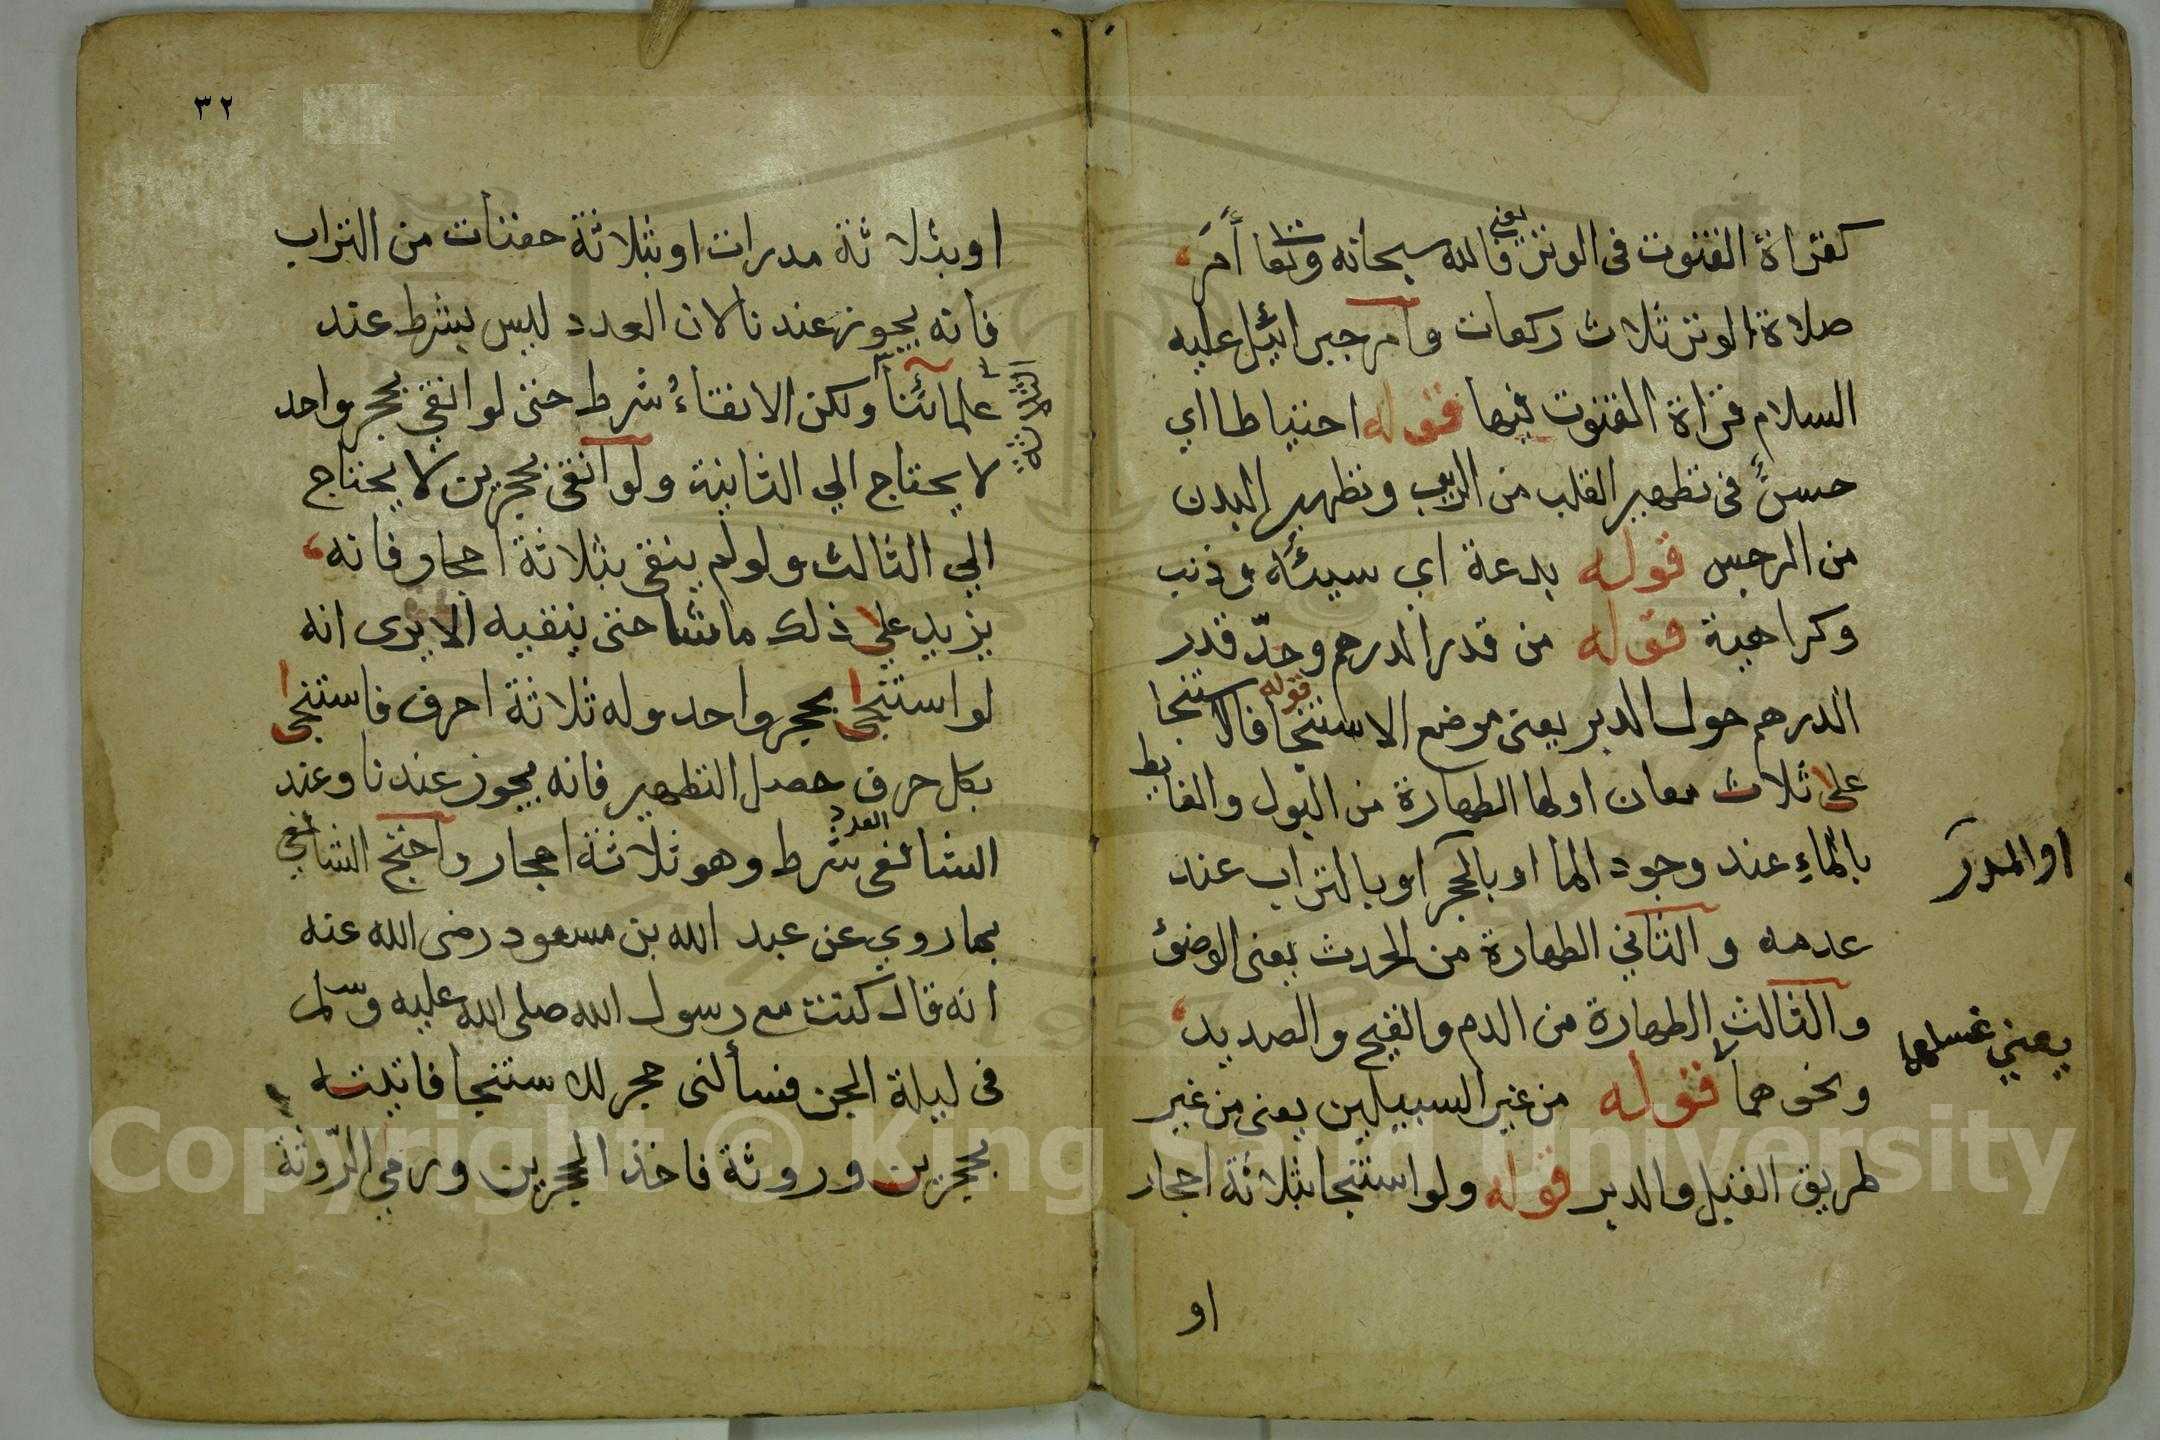 كقراة القنوت فى الوتر يعني فالله سبحانه وتعا أمر
صلاة الوتر ثلاث ركعات وامر جبرائيل عليه
السلام قراة القنوت فيها قوله احتياطا اي
حسن فى تطهير القلب من الريب وتطهير البدن
من الرجس قوله بدعة اي سيئة وذنب
وكراهية قوله من قدر الدرهم وحدّ قدر
الدرهم حول الدبر يعنى موضع الاستنجا قوله فالاستنجا
على ثلاث معان اولها الطهارة من البول والغايط
بالماء عند وجود الما او بالحجر او بالتراب عند
او المدر
عدمه والثاني الطهارة من الحدث يعنى الوضوء
والثالث الطهارة من الدم والقيح والصديد
يعني غسلها
ونحوهما قوله من غير السبيلين يعنى من غير
طريق القبل والدبر قوله ولو استنجا بثلاثة احجار
او
٣٢
او بثلاثة مدرات او بثلاثة حفنات من التراب
فانه يجوز عندنا لان العدد ليس بشرط عند
علمائنا ولكن الانقاء شرط حتى لو انقي بحجر واحد
الثلاثة
لا يحتاج الي الثانية ولو انقى بحجرين لا يحتاج
الي الثالث ولو لم ينقى بثلاثة احجار فانه
يزيد على ذلك ما شا حتى ينقيه الا يرى انه
لو استنجى بحجر واحد وله ثلاثة احرف فاستنجى
بكل حرف حصل التطهير فانه يجوز عندنا وعند
الشافعى العدد شرط وهو ثلاثة احجار واحتج الشافعي
بما روي عن عبد الله بن مسعود رضى الله عنه
انه قال كنت مع رسول الله صلى الله عليه وسلم
فى ليلة الجن فسألنى حجر للاستنجا فاتيته
بحجرين وروثة فاخذ الحجرين ورمي الرّوثة
Copyright © King Saud University
1957